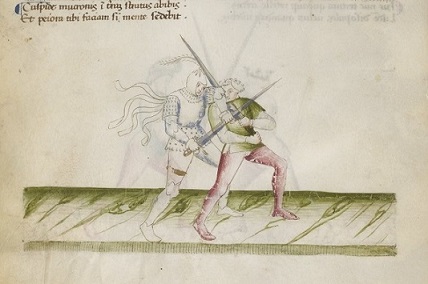 Cuspide mucronis ĩ trã stratus abibis .
Et peiora tibi faciam si mente sedebit .